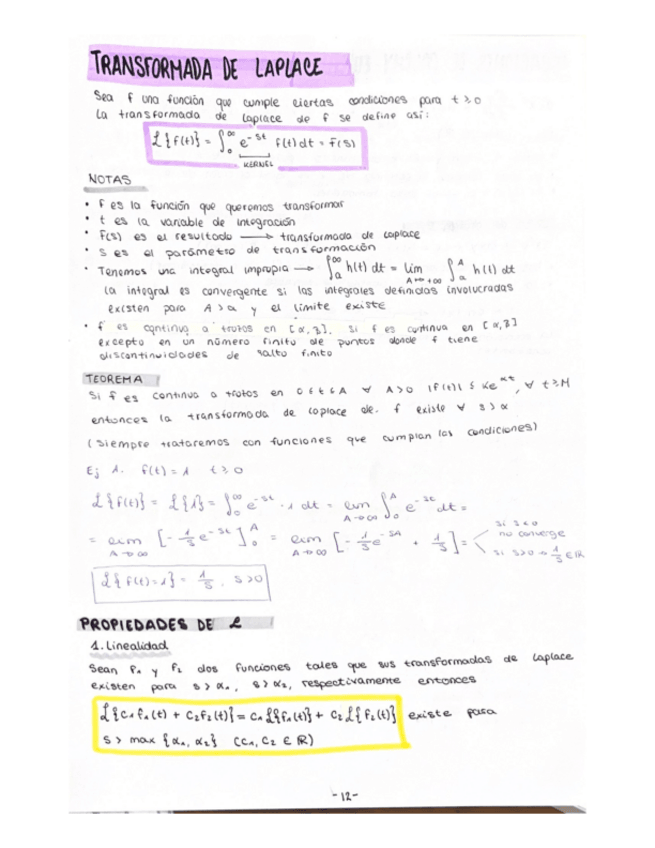 TRANSFORMADA DE LAPLACE
Sea f una función que cumple ciertas condiciones para t ≥ 0
La transformada de Laplace de f se define así:
ℒ{f(t)} = ∫₀^∞ e^{-st} f(t) dt = F(s)
KERNEL
NOTAS
• f es la función que queremos transformar
• t es la variable de integración
• F(s) es el resultado → transformada de Laplace
• s es el parámetro de transformación
• Tenemos una integral impropia → ∫ₐ^∞ h(t) dt = lim_{A→+∞} ∫ₐ^A h(t) dt
la integral es convergente si las integrales definidas involucradas
existen para A > a y el límite existe
• f es continua a trotos en [α, β]. Si f es continua en [α, β]
excepto en un número finito de puntos donde f tiene
discontinuidades de salto finito
TEOREMA
Si f es continua a trotos en 0 ≤ t ≤ A ∀ A > 0 |f(t)| ≤ Ke^{αt}, ∀ t ≥ M
entonces la transformada de Laplace de f existe ∀ s > α
(Siempre trataremos con funciones que cumplan las condiciones)
Ej 1. f(t) = 1 t ≥ 0
ℒ{f(t)} = ℒ{1} = ∫₀^∞ e^{-st} · 1 dt = lim_{A→∞} ∫₀^A e^{-st} dt =
= lim_{A→∞} [-1/s e^{-st}]₀^A = lim_{A→∞} [-1/s e^{-sA} + 1/s] =
si s<0
no converge
si s>0 → 1/s ∈ ℝ
ℒ{f(t)=1} = 1/s, s>0
PROPIEDADES DE ℒ
1. Linealidad
Sean f₁ y f₂ dos funciones tales que sus transformadas de Laplace
existen para s > α₁, s > α₂, respectivamente entonces
ℒ{c₁f₁(t) + c₂f₂(t)} = c₁ℒ{f₁(t)} + c₂ℒ{f₂(t)} existe para
s > max {α₁, α₂} (c₁, c₂ ∈ ℝ)
-12-